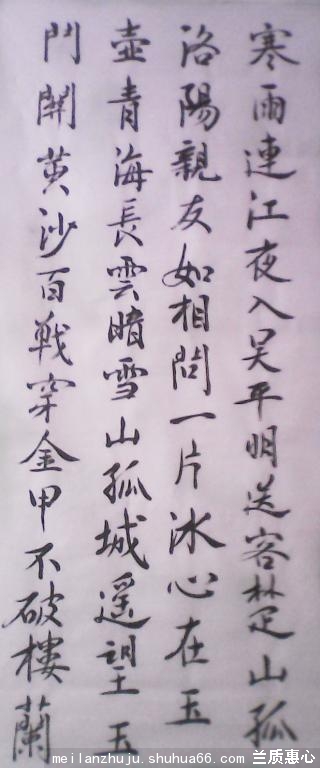 寒雨連江夜入吴平明送客楚山孤
洛陽親友如相問一片冰心在玉
壺青海長雲暗雪山孤城遥望玉
門關黄沙百戦穿金甲不破樓蘭
meilanzhuju.shuhua66.com 兰质惠心